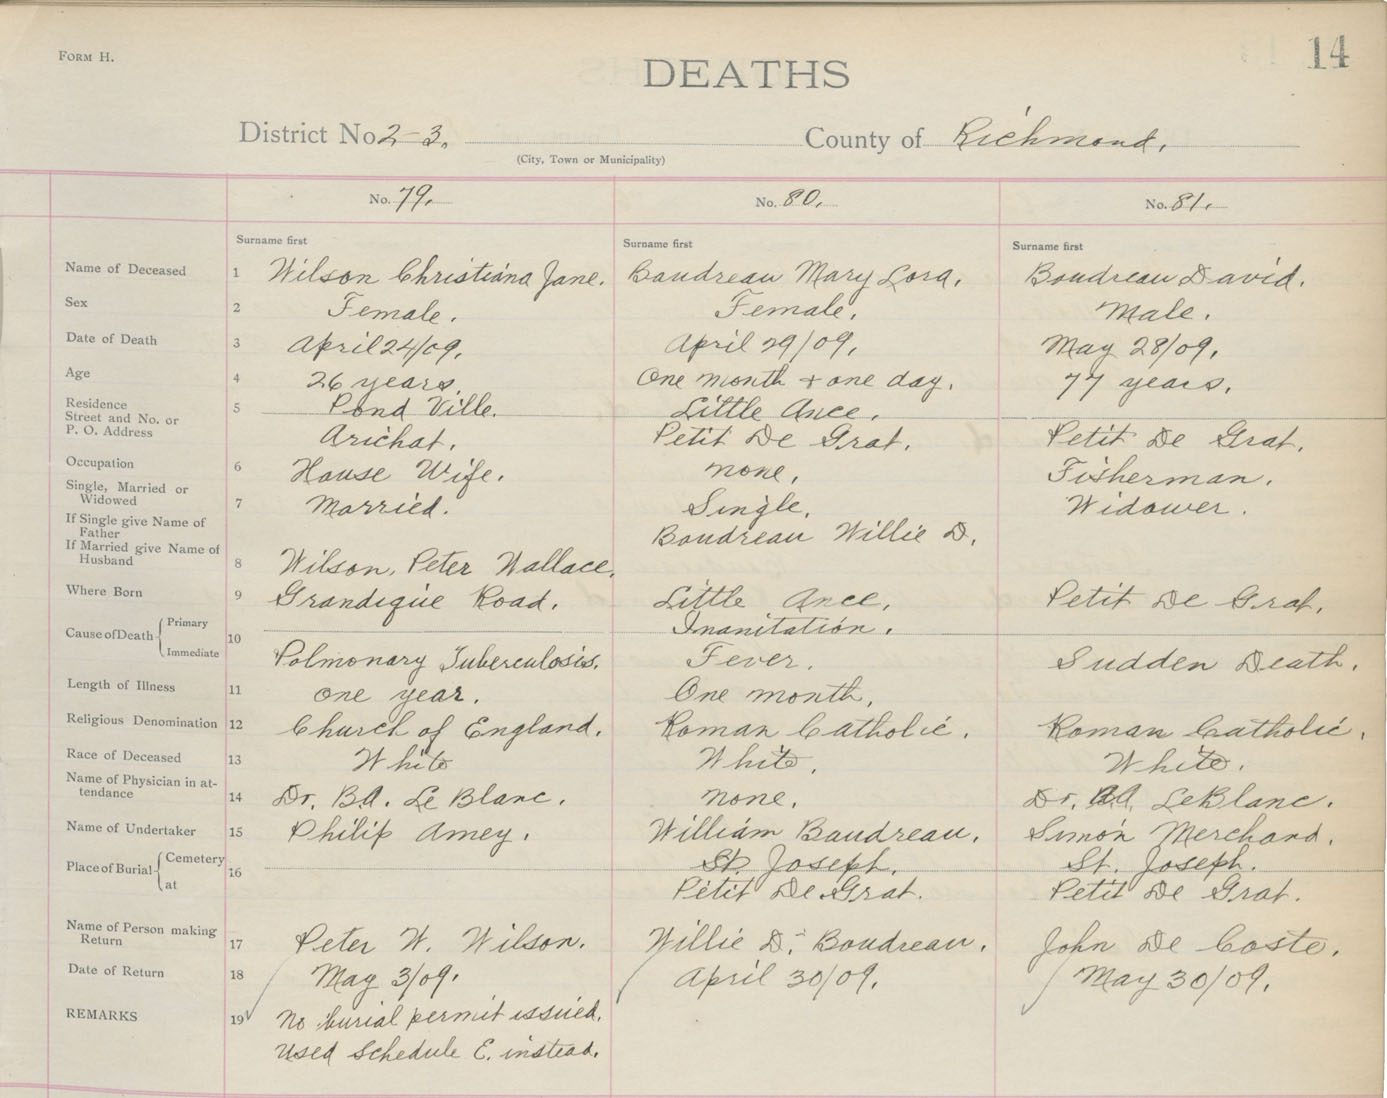 FORM H.
14
DEATHS
District No 2-3.
County of Richmond.
(City, Town or Municipality)
No. 79.
No. 80.
No. 81.
Surname first
Surname first
Surname first
Name of Deceased 1 Wilson Christiana Jane. Boudreau Mary Lora. Boudreau David.
Sex 2 Female. Female. Male.
Date of Death 3 April 24/09. April 29/09. May 28/09.
Age 4 26 years. One month + one day. 77 years.
Residence 5 Pond Ville. Little Ance.
Street and No. or
P. O. Address Arichat. Petit De Grat. Petit De Grat.
Occupation 6 House Wife. none. Fisherman.
Single, Married or
Widowed 7 Married. Single. Widower.
If Single give Name of
Father Boudreau Willie D.
If Married give Name of
Husband 8 Wilson, Peter Wallace.
Where Born 9 Grandique Road. Little Ance. Petit De Grat.
Cause of Death Primary 10 Inanitation.
Immediate Polmonary Tuberculosis. Fever. Sudden Death.
Length of Illness 11 one year. One month.
Religious Denomination 12 Church of England. Roman Catholic. Roman Catholic.
Race of Deceased 13 White White. White.
Name of Physician in at-
tendance 14 Dr. B.A. Le Blanc. none. Dr. B.A. LeBlanc.
Name of Undertaker 15 Philip Amey. William Baudreau. Simon Merchand.
Place of Burial Cemetery 16 St. Joseph. St. Joseph.
at Petit De Grat. Petit De Grat.
Name of Person making
Return 17 Peter W. Wilson. Willie D. Boudreau. John De Coste.
Date of Return 18 May 3/09. April 30/09. May 30/09.
REMARKS 19 No burial permit issued.
Used Schedule E. instead.